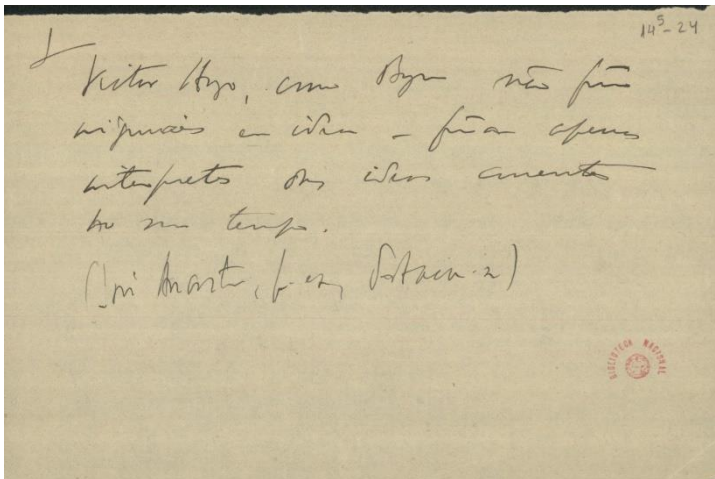 14⁵-24
Victor Hugo, como Byron não foram
originaes em idéa – foram apenas
interpretes das idéas correntes
no seu tempo.
BIBLIOTECA NACIONAL